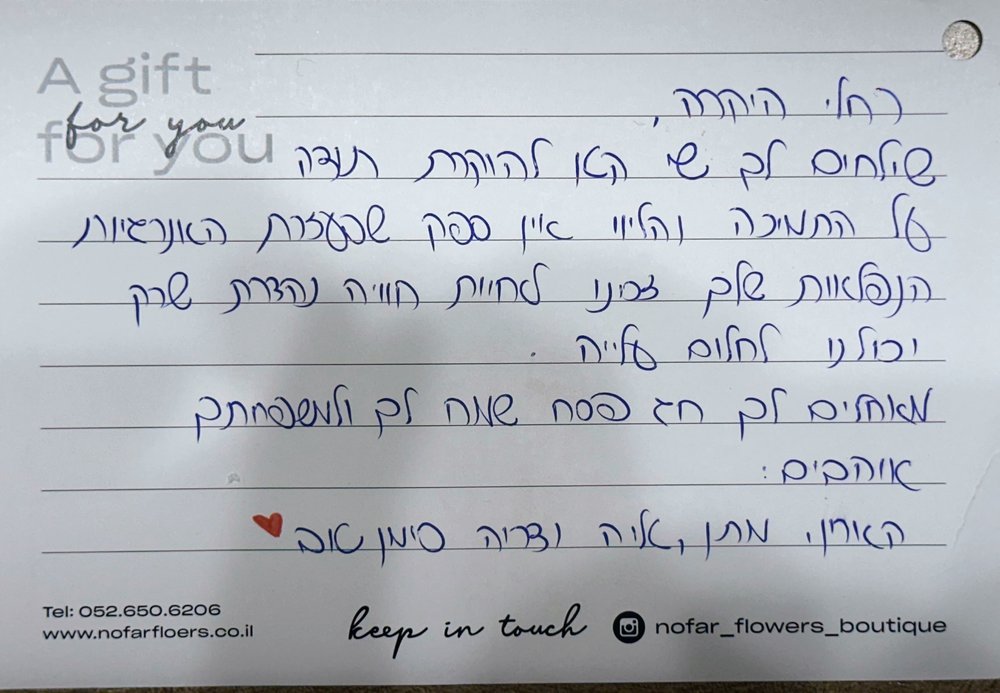 A gift
for you
for you
רחלי היקרה,
שולחים לך שי קטן להוקרת תודה
על התמיכה והליווי אין ספק שבעזרת האנרגיות
הנפלאות שלך זכינו לחיות חוויה נהדרת שרק
יכולנו לחלום עלייה.
מאחלים לך חג פסח שמח לך ולמשפחתך
אוהבים:
מתן, אליה ודריה סימן טוב
Tel: 052.650.6206
www.nofarfloers.co.il
keep in touch
nofar_flowers_boutique